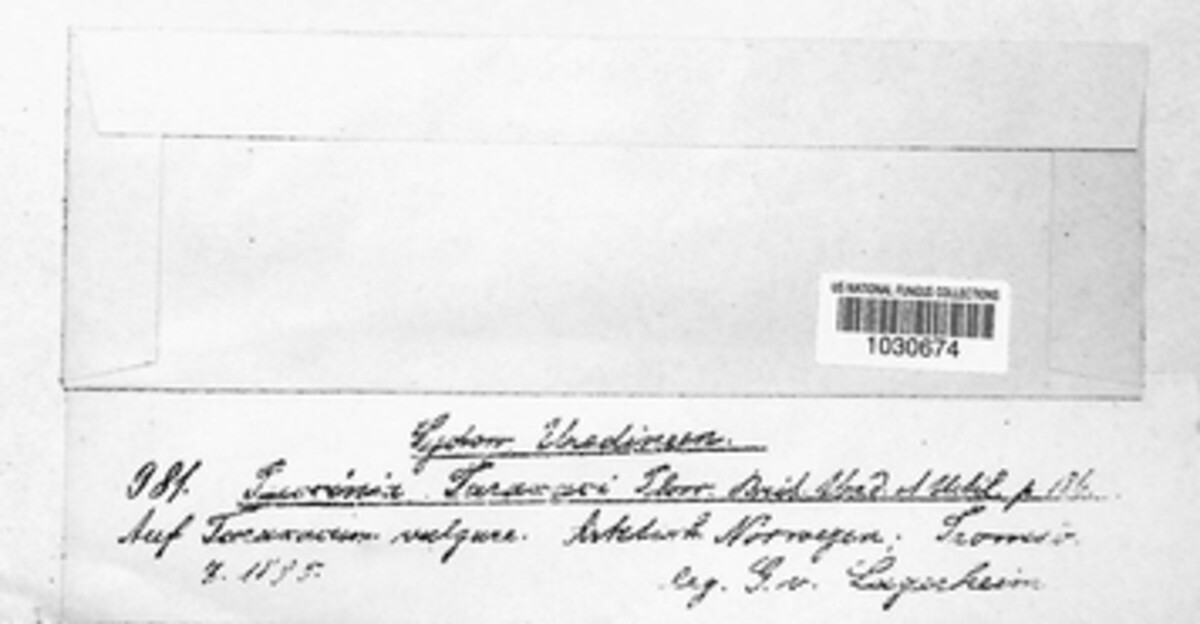 US NATIONAL FUNGUS COLLECTIONS
1030674
Sydow Uredineen.
981. Puccinia Taraxaci Plow. Brit. Ured. et Ustil. p.
Auf Taraxacum vulgare. Norwegen, Tromsö.
1895.
leg. G. v. Lagerheim